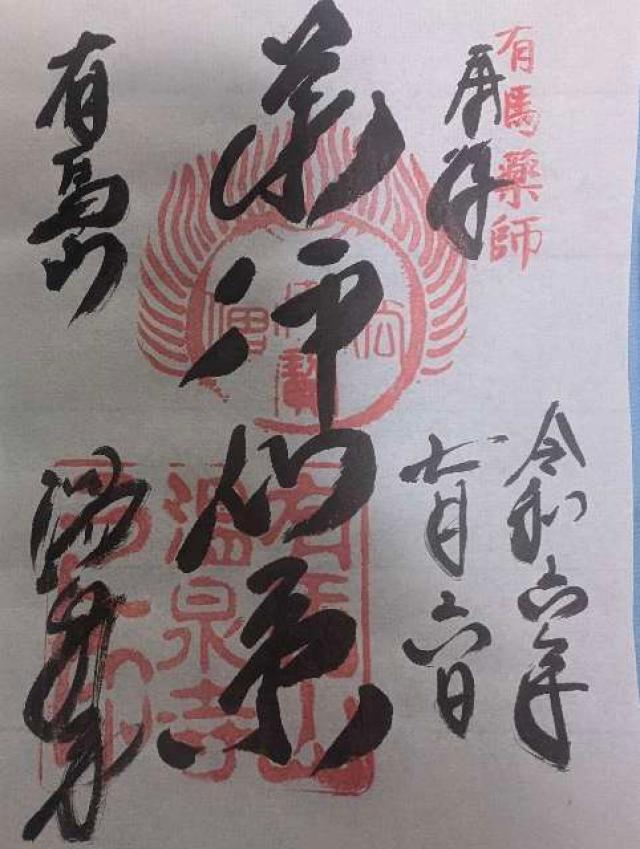 有馬藥師
奉拝
令和六年
七月六日
薬師如来
有馬山
温泉寺
佛法僧寳
有馬山
温泉寺